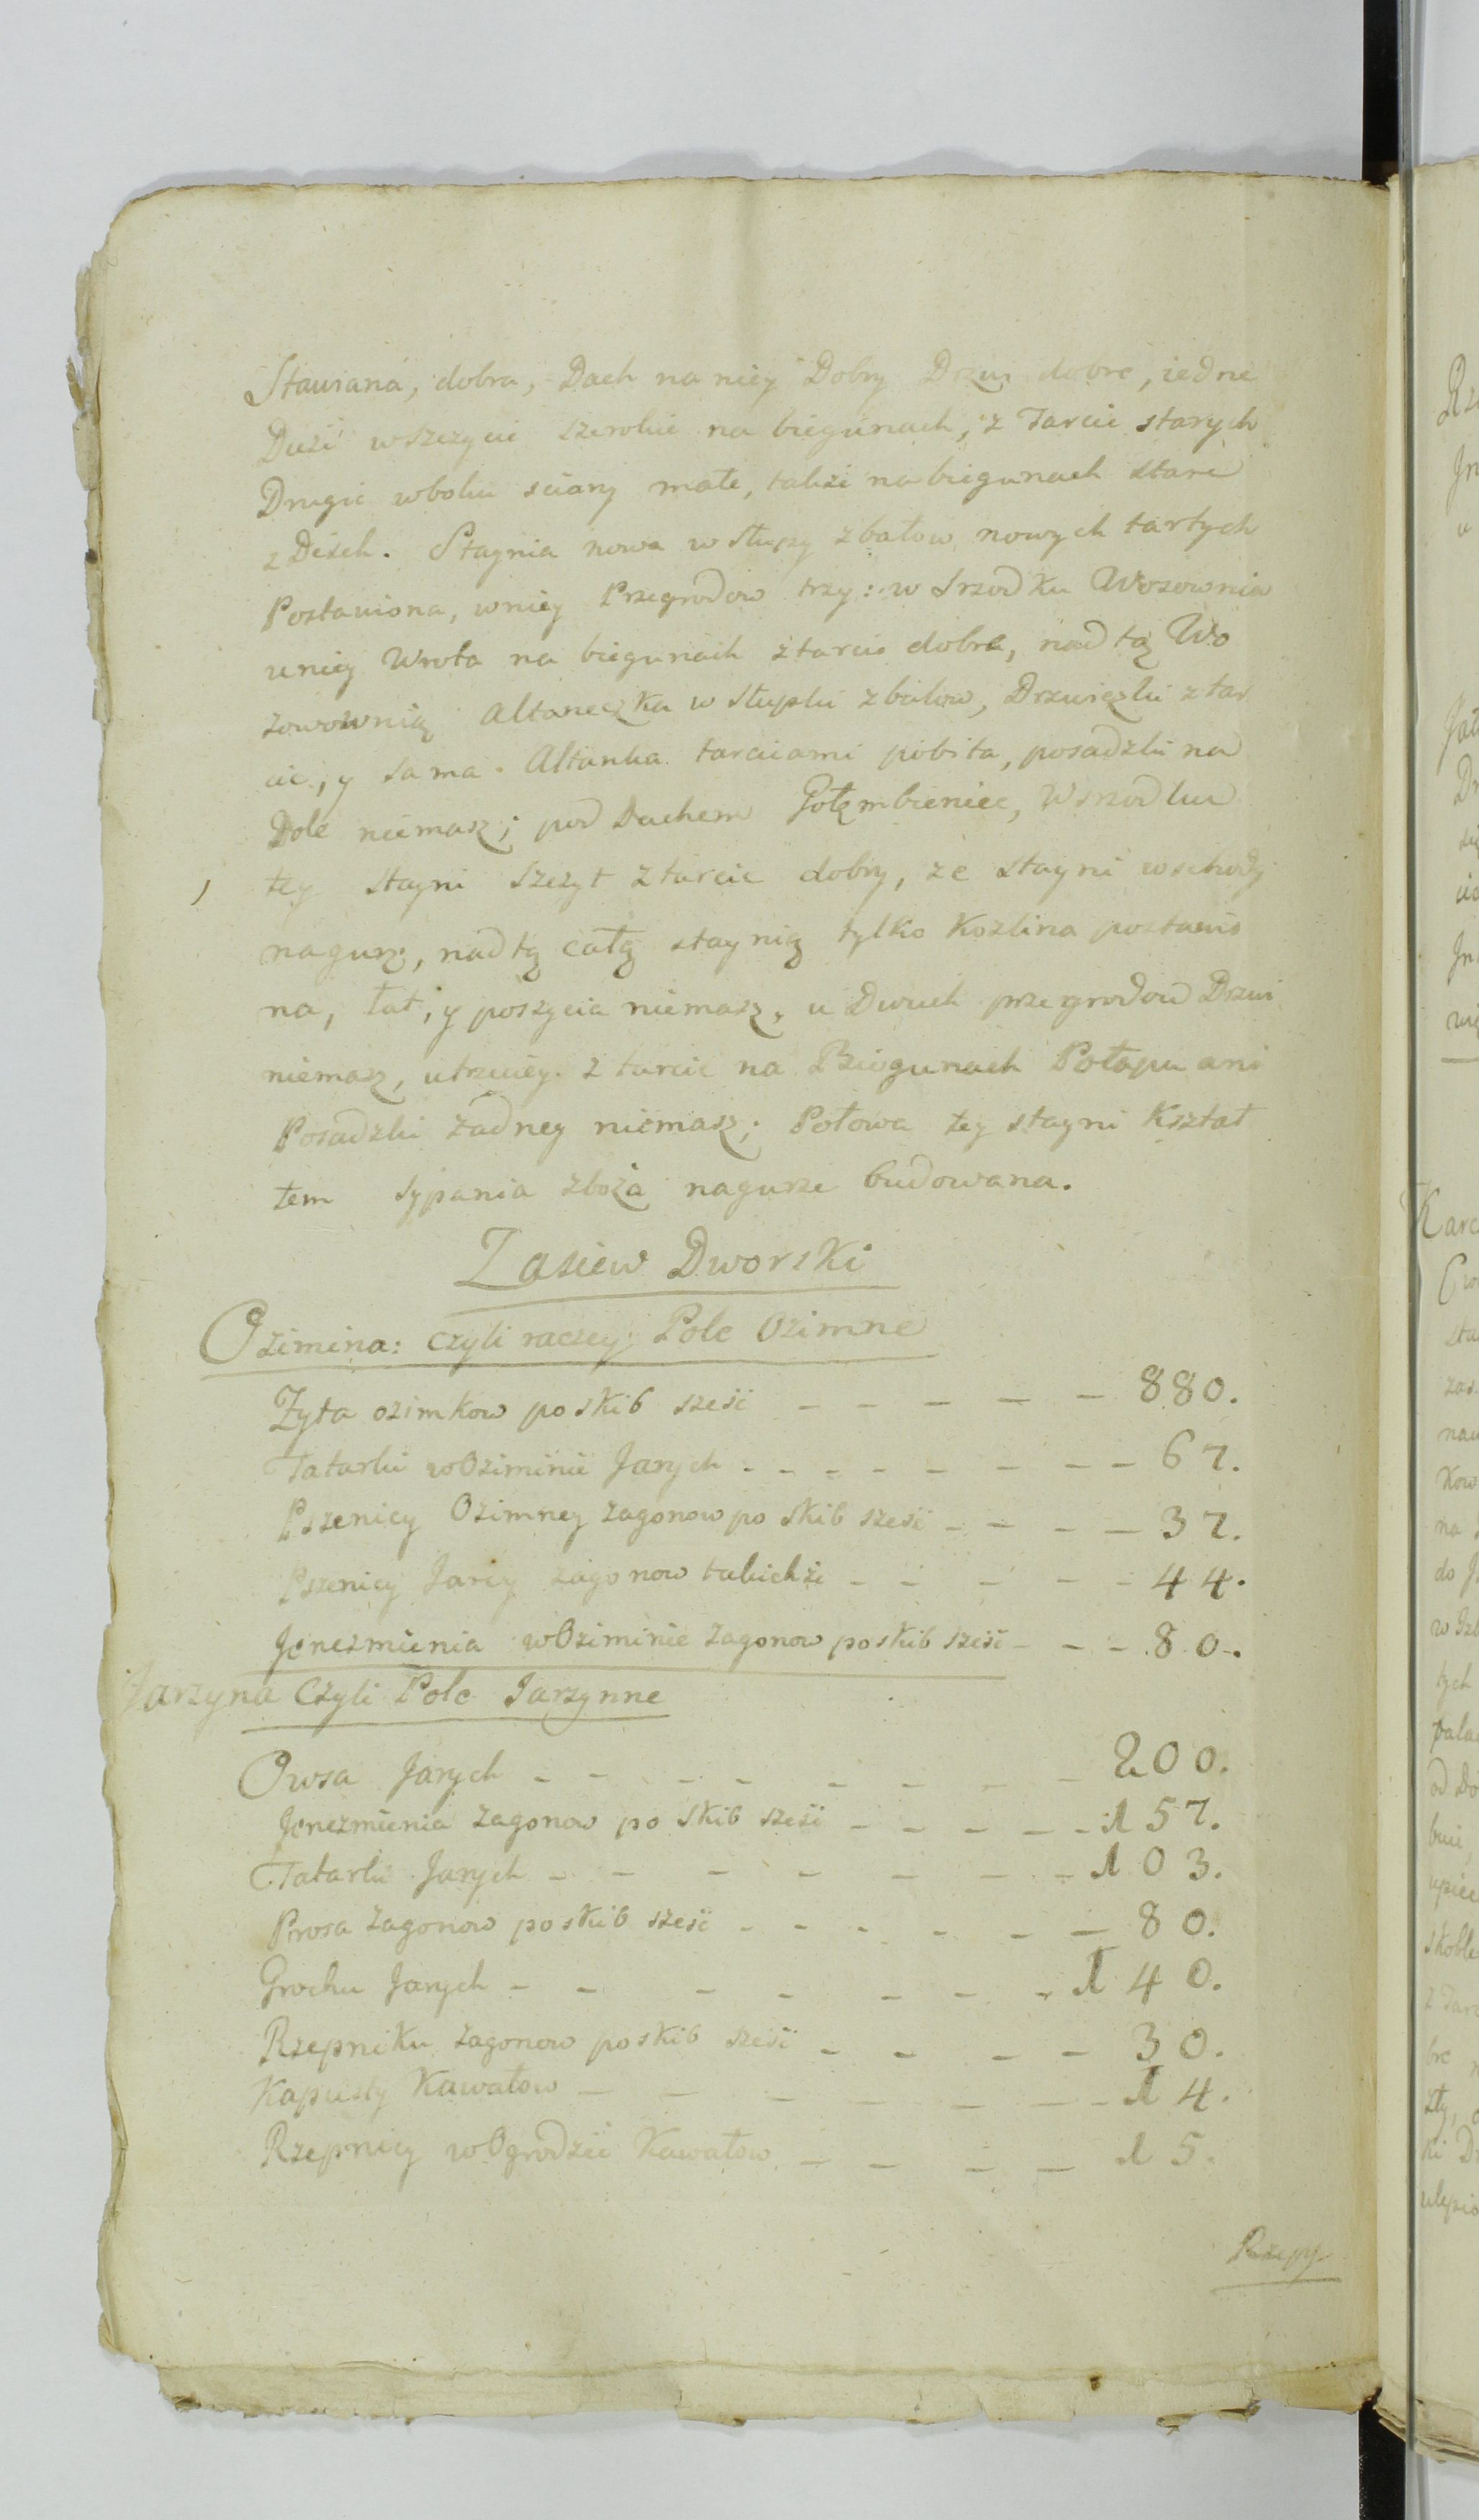 Stawiana, dobra, Dach na niey Dobry Drzwi dobre, iedne
Duże wszczycie szerokie na biegunach, z Tarcic starych
Drugie wboku sciany małe, także na biegunach stare
z Desek. Staynia nowa w słupy z balow nowych tartych
Postawiona, wniey Przegrodow trzy: w Srzodku Wozownia
uniey Wrota na biegunach z tarcic dobre, nad tą Wo
zowownią Altaneczka w słupki z balow, Drzwiczki z tar
cic, y sama Altanka tarciami pobita, posadzki na
Dole niemasz; pod Dachem Gołęmbieniec, W srzodku
tey stayni szczyt z tarcic dobry, ze stayni wschody
na gurę, nad tą całą staynią tylko Kozlina postawio
na, łat, y poszycia niemasz, u Dwuch przegrodow Drzwi
niemasz, utrzeciey z tarcic na Biegunach Połapu ani
Posadzki żadney niemasz; Połowa tey stayni Kształ
tem sypania zboża nagurze budowana.
Zasiew Dworski
Ozimina: czyli raczey Pole Ozimne
Zyta ozimkow po skib sześć - - - - - 880.
Tatarki w Oziminie Jarych - - - - - - - - - 67.
Pszenicy Ozimney zagonow po skib sześć - - - - 37.
Pszenicy Jarey zagonow takichże - - - - - 44.
Jenczmienia w Oziminie zagonow po skib sześć - - - 80.
Jarzyna Czyli Pole Jarzynne
Owsa Jarych - - - - - - - - 200.
Jenczmienia zagonow po skib sześć - - - - - 157.
Tatarki Jarych - - - - - - - - 103.
Prosa zagonow po skib sześć - - - - - - 80.
Grochu Jarych - - - - - - - 140.
Rzepniku zagonow po skib sześć - - - - 30.
Kapusty Kawałow - - - - - - - 14.
Rzepnicy w Ogrodzie Kawałow - - - - 15.
Rzepy